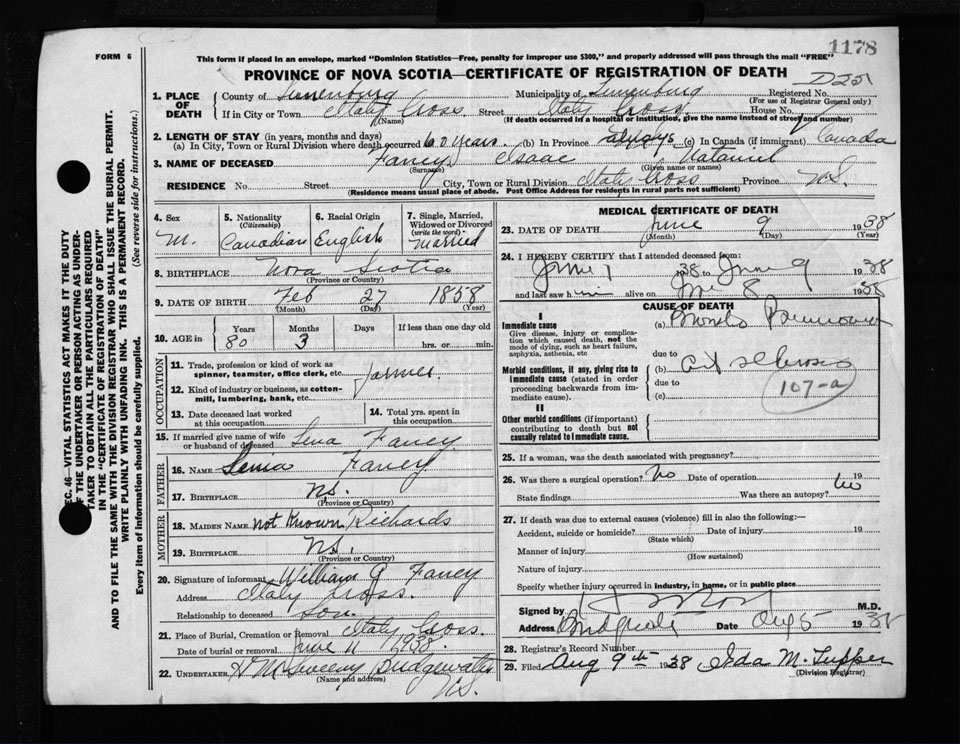 1178
FORM 6
This form if placed in an envelope, marked "Dominion Statistics—Free, penalty for improper use $300," and properly addressed will pass through the mail "FREE"
PROVINCE OF NOVA SCOTIA—CERTIFICATE OF REGISTRATION OF DEATH
1. PLACE OF DEATH
County of Lunenburg Municipality of Lunenburg Registered No. D251
(For use of Registrar General only)
If in City or Town Italy Cross Street Italy Cross House No.
(Name) (If death occurred in a hospital or institution, give the name instead of street and number)
2. LENGTH OF STAY (in years, months and days)
(a) In City, Town or Rural Division where death occurred 60 years (b) In Province always (c) In Canada (if immigrant) Canada
3. NAME OF DECEASED Fancy Isaac
(Surname) (Given name or names)
RESIDENCE No. Street City, Town or Rural Division Italy Cross Province N.S.
(Residence means usual place of abode. Post Office Address for residents in rural parts not sufficient)
4. Sex M.
5. Nationality (Citizenship) Canadian
6. Racial Origin English
7. Single, Married, Widowed or Divorced (write the word) Married
8. BIRTHPLACE Nova Scotia
(Province or Country)
9. DATE OF BIRTH Feb 27 1858
(Month) (Day) (Year)
10. AGE in Years Months Days If less than one day old
80 3 hrs. or min.
OCCUPATION
11. Trade, profession or kind of work as spinner, teamster, office clerk, etc. farmer
12. Kind of industry or business, as cotton-mill, lumbering, bank, etc.
13. Date deceased last worked at this occupation
14. Total yrs. spent in this occupation
15. If married give name of wife or husband of deceased Lena Fancy
FATHER
16. Name Fancy
17. Birthplace N.S.
(Province or Country)
MOTHER
18. Maiden Name Not Known Richards
19. Birthplace N.S.
(Province or Country)
20. Signature of informant William G Fancy
Address Italy Cross.
Relationship to deceased Son.
21. Place of Burial, Cremation or Removal Italy Cross.
Date of burial or removal June 11 1938
22. UNDERTAKER Sweeny Bridgewater
(Name and address) N.S.
MEDICAL CERTIFICATE OF DEATH
23. DATE OF DEATH June 9 1938
(Month) (Day) (Year)
24. I HEREBY CERTIFY that I attended deceased from:
June 7 1938 to June 9 1938
and last saw him alive on June 8 1938
CAUSE OF DEATH
I
Immediate cause
Give disease, injury or complication which caused death, not the mode of dying, such as heart failure, asphyxia, asthenia, etc
(a) Broncho Pneumonia
due to
Morbid conditions, if any, giving rise to immediate cause (stated in order proceeding backwards from immediate cause).
(b) art sclerosis
due to
(c)
107-a
II
Other morbid conditions (if important) contributing to death but not causally related to immediate cause.
25. If a woman, was the death associated with pregnancy?
26. Was there a surgical operation? No Date of operation 19
State findings Was there an autopsy? No
27. If death was due to external causes (violence) fill in also the following:—
Accident, suicide or homicide? Date of injury 19
(State which)
Manner of injury
(How sustained)
Nature of injury
Specify whether injury occurred in industry, in home, or in public place
Signed by M.D.
Address Bridgewater Date Aug 5 1938
28. Registrar's Record Number
29. Filed Aug 9th 1938 Ida M. Tupper
(Division Registrar)
SEC. 46—VITAL STATISTICS ACT MAKES IT THE DUTY
OF THE UNDERTAKER OR PERSON ACTING AS UNDER-
TAKER TO OBTAIN ALL THE PARTICULARS REQUIRED
IN THE "CERTIFICATE OR REGISTRATION OF DEATH"
AND TO FILE THE SAME WITH THE DIVISION REGISTRAR WHO SHALL ISSUE THE BURIAL PERMIT.
WRITE PLAINLY WITH UNFADING INK. THIS IS A PERMANENT RECORD.
Every item of information should be carefully supplied. (See reverse side for instructions.)